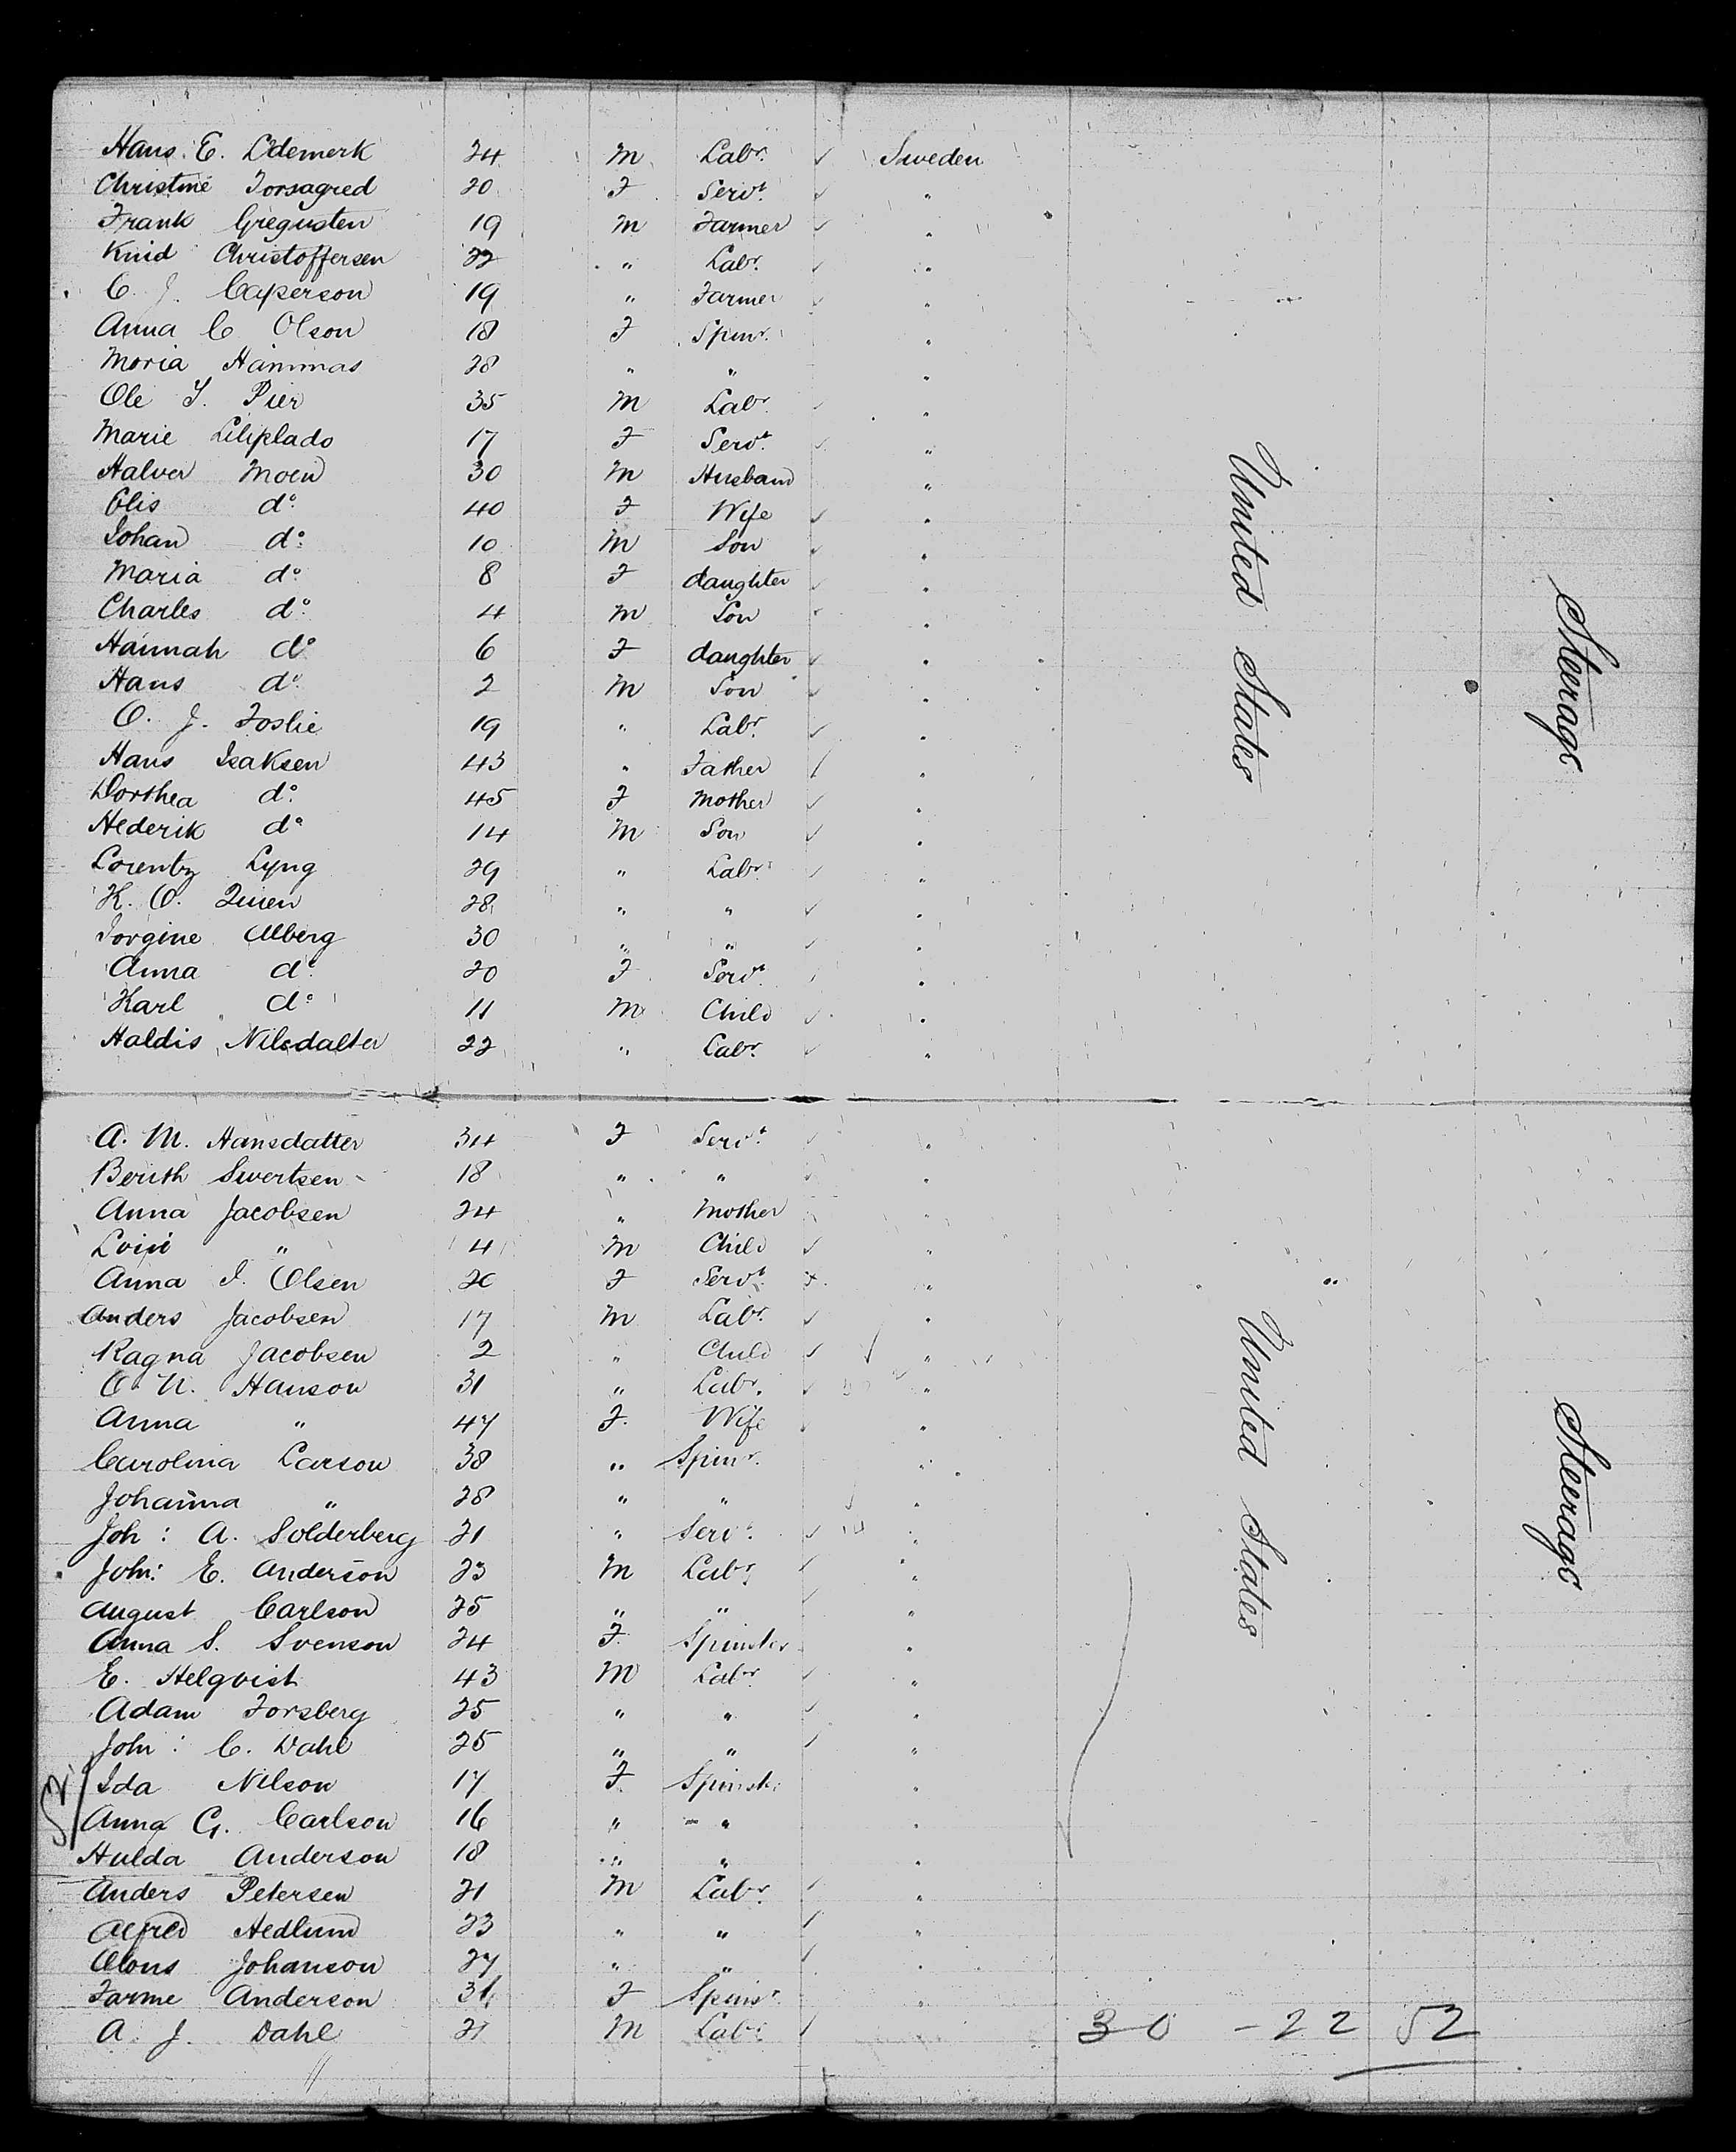 Hans. E. Ldemerk 24 M Labr. ✓ Sweden
Christine Forsagred 20 F Servt. ✓ "
Frank Gregusten 19 M Farmer ✓ "
Knid Christoffersen 22 " Labr. ✓ "
C. J. Caperson 19 " Farmer ✓ "
Anna C Olson 18 F Spinr. "
Moria Hammas 28 " " "
Ole T. Pier 35 M Labr. ✓ "
Marie Liliplado 17 F Servt. ✓ "
Halver Moen 30 M Husband "
Elis do. 40 F Wife ✓ "
Johan do. 10 M Son ✓ "
Maria do. 8 F daughter ✓ "
Charles do. 4 M Son "
Hannah do 6 F daughter ✓ "
Hans do. 2 M Son ✓ "
O. J. Foslie 19 " Labr. ✓ "
Hans Isaksen 43 " Father ✓ "
Dorthea do. 45 F Mother ✓ "
Hederik do 14 M Son ✓ "
Lorentz Lyng 29 " Labr. ✓ "
K. O. 28 " " ✓ "
Jorgine Alberg 30 " " ✓ "
Anna do. 20 F Servt. "
Karl do. 11 M Child ✓ "
Haldis Nilsdalter 22 " Labr. ✓ "
United States
Steerage
A. M. Hansdatter 34 F Servt. ✓ "
Berith Swertsen 18 " " ✓ "
Anna Jacobsen 24 " Mother "
" 4 M Child ✓ "
Anna I. Olsen 20 F Servt. x "
Anders Jacobsen 17 M Labr. ✓ "
Ragna Jacobsen 2 " Child ✓ ✓ "
O. N. Hanson 31 " Labr. ✓ "
Anna " 47 F. Wife "
Carolina Larson 38 " Spinr. "
Johanna " 28 " " "
Joh: A. Solderberg 21 " Servt. ✓ "
John: E. Anderson 23 M Labr. ✓ "
August Carlson 25 " " ✓ "
Anna S. Svenson 24 F. Spinster "
E. Helqvist 43 M Labr. ✓ "
Adam Forsberg 25 " " ✓ "
John: C. Dahl 25 " " ✓ "
52 Ida Nilson 17 F. Spinster "
Anna G. Carlson 16 " " "
Hulda Anderson 18 " " "
Anders Petersen 21 M Labr. ✓ "
Alfred Hedlund 23 " " ✓ "
Johanson 27 " " ✓ "
Anderson 31 F Spinsr "
A. J. Dahl 21 M Labr. ✓
United States
Steerage
30 - 22 52